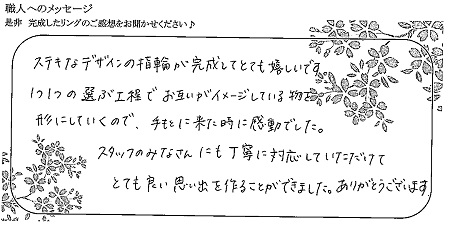 職人へのメッセージ
是非 完成したリングのご感想をお聞かせください♪
ステキなデザインの指輪が完成してとても嬉しいです
1つ1つの選ぶ工程でお互いがイメージしている物を
形にしていくので、手もとに来た時に感動でした。
スタッフのみなさんにも丁寧に対応していただけて
とても良い思い出を作ることができました。ありがとうございます